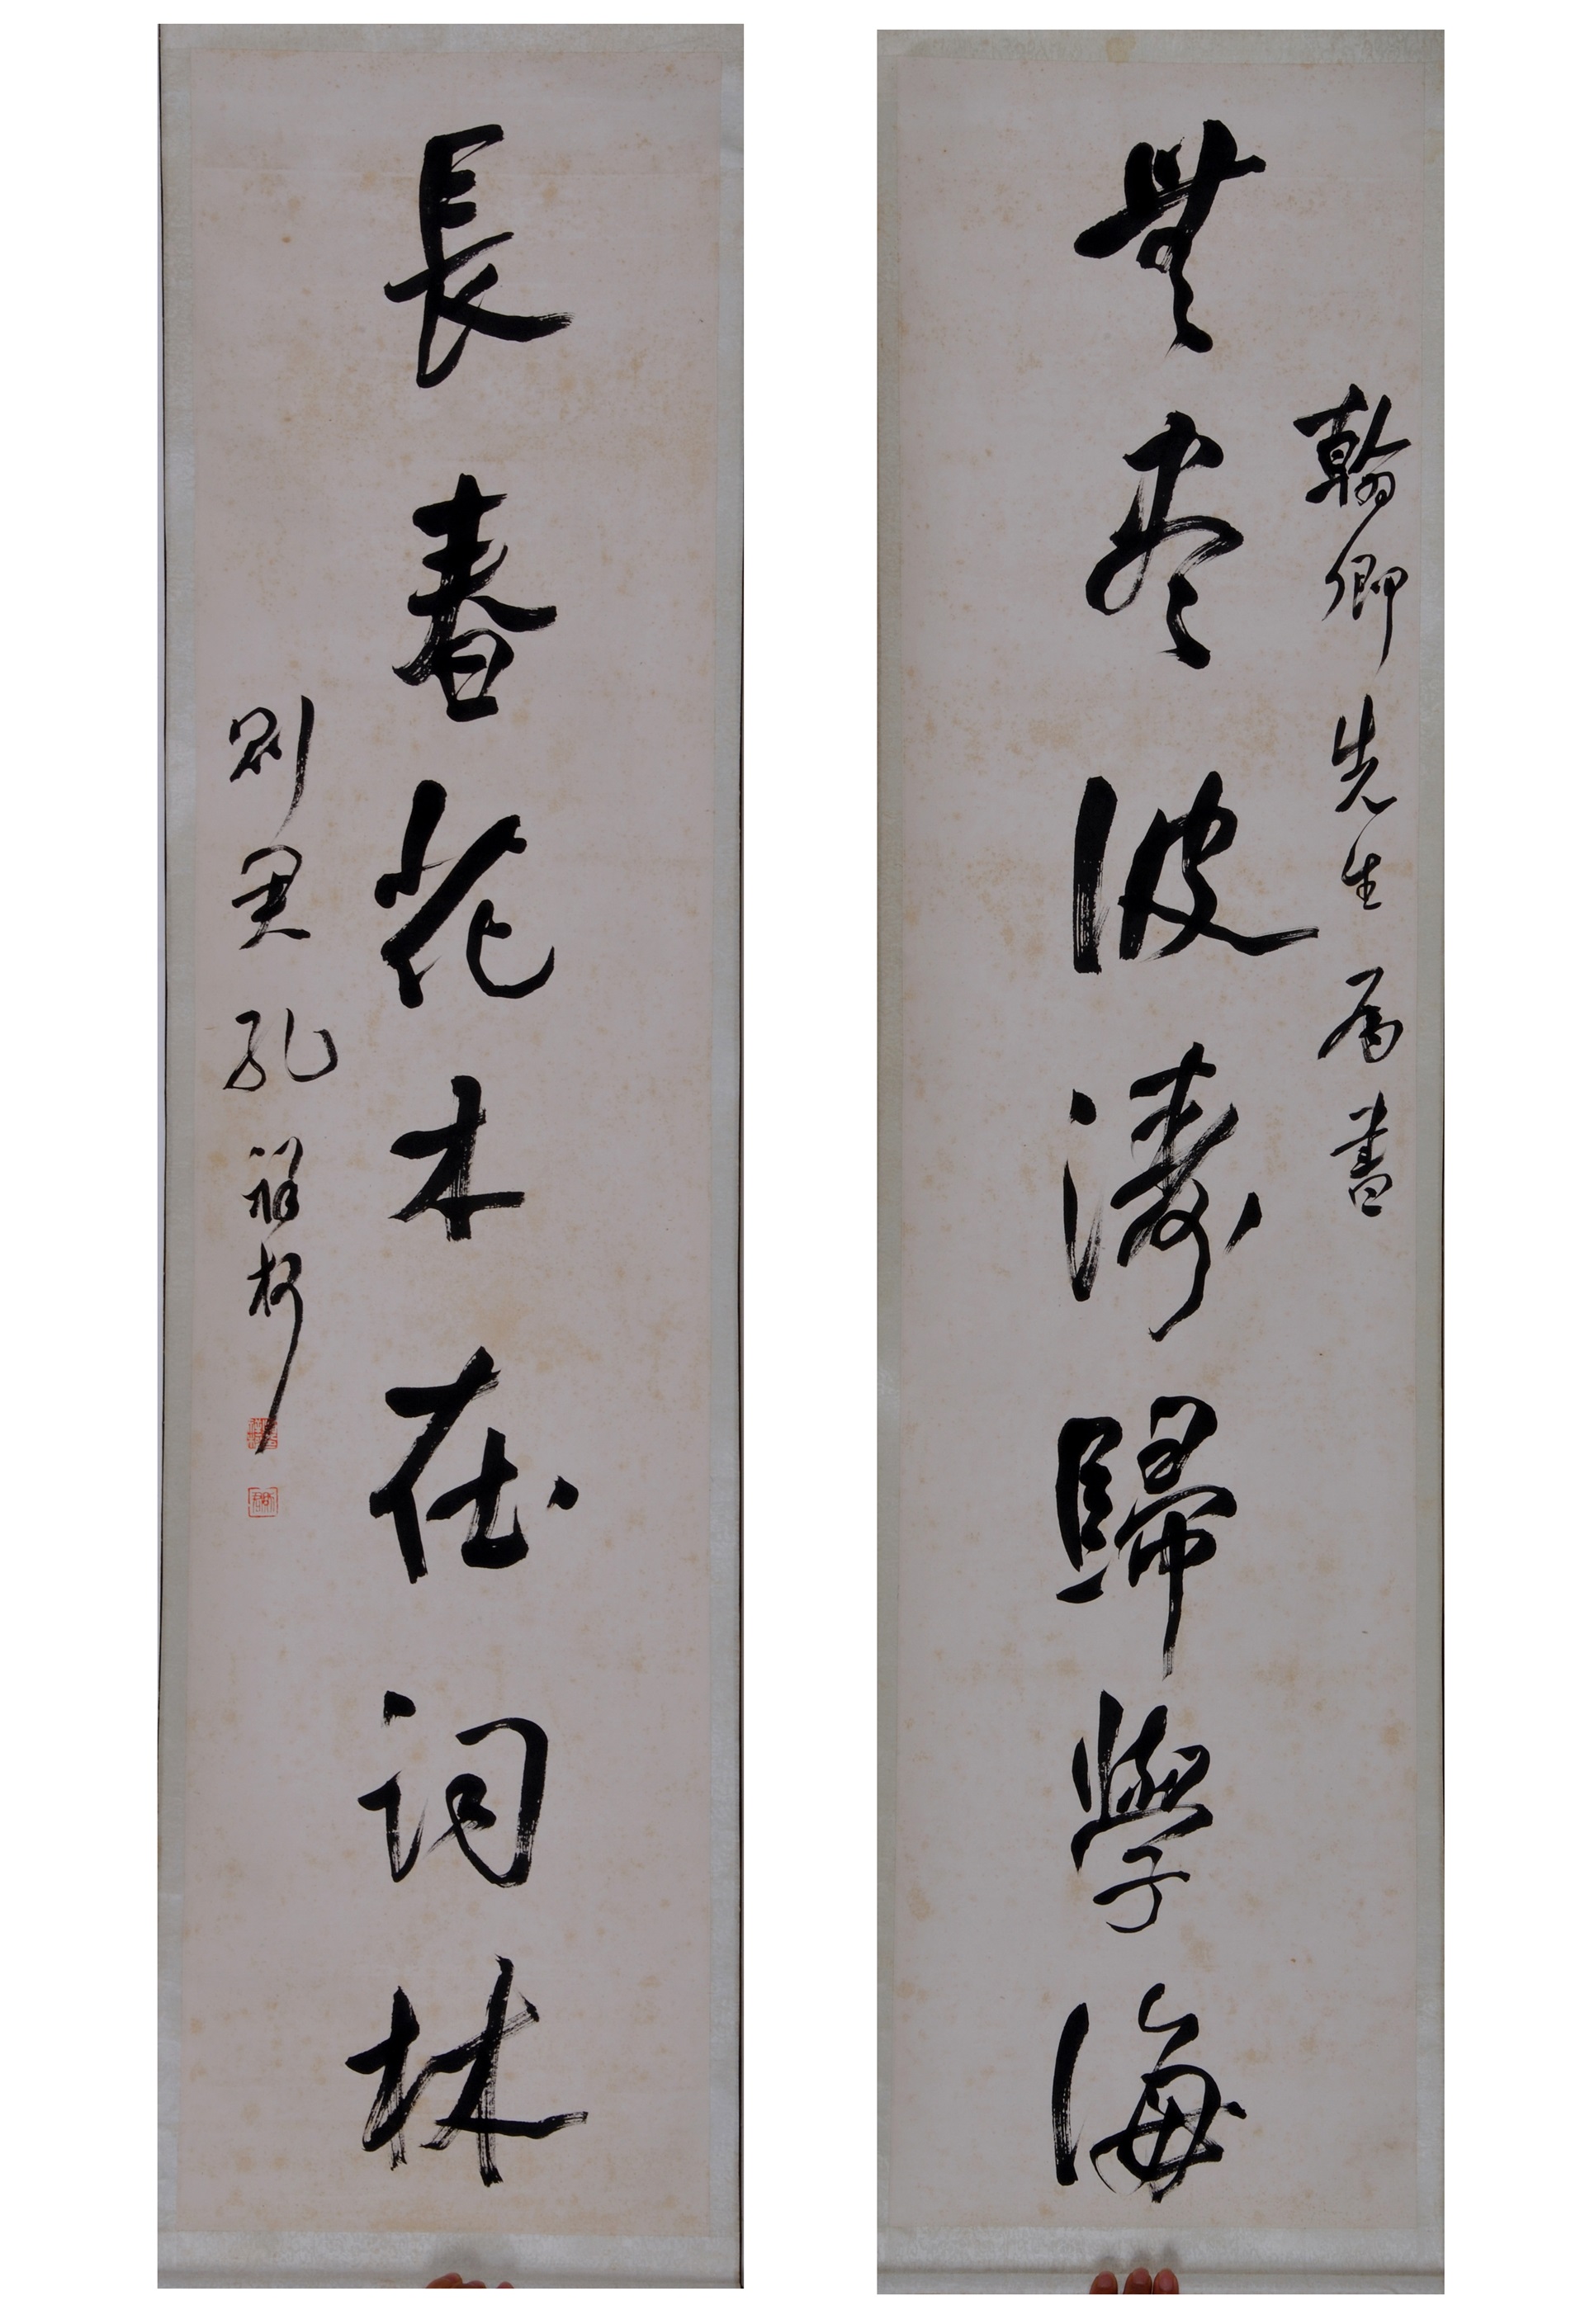 翰卿先生属書
無盡波濤歸學海
長春花木在詞林
則君孔祥柯